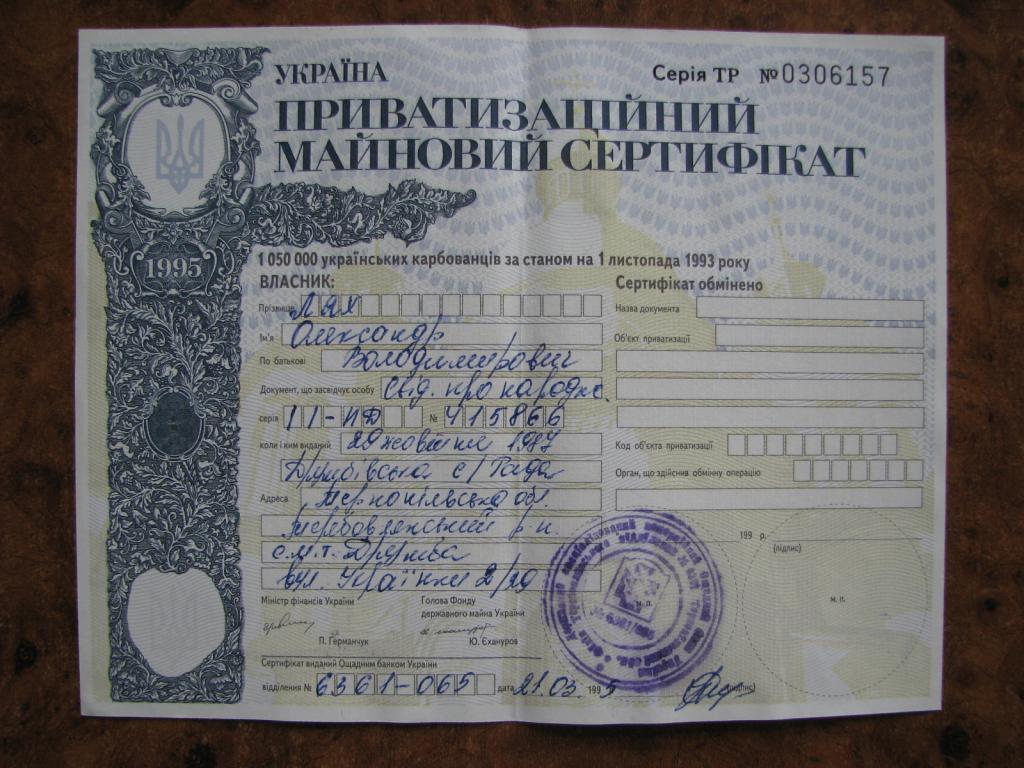 УКРАЇНА
Серія ТР №0306157
ПРИВАТИЗАЦІЙНИЙ
МАЙНОВИЙ СЕРТИФІКАТ
1995
1 050 000 українських карбованців за станом на 1 листопада 1993 року
ВЛАСНИК:
Прізвище Лях
Ім'я Олександр
По батькові Володимирович
Документ, що засвідчує особу Свід. про народж.
серія II-ИД № 415866
коли і ким виданий 29 жовтня 1987
Дружбівська с/Рада
Адреса Тернопільська обл.
Теребовлянський р-н.
с.м.т. Дружба
вул. Українки 2/29
Міністр фінансів України
П. Германчук
Голова Фонду
державного майна України
Ю. Єхануров
Сертифікат виданий Ощадним банком України
відділення № 6361-065 дата 21.03. 1995
(підпис)
Сертифікат обмінено
Назва документа
Об'єкт приватизації
Код об'єкта приватизації
Орган, що здійснив обмінну операцію
199 р.
(підпис)
м. п.
м. п.